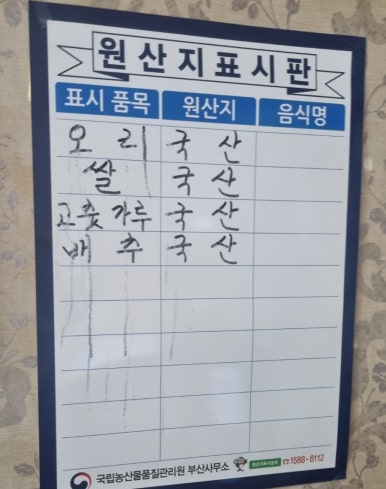 원산지표시판
표시 품목 원산지 음식명
오리 국산
쌀 국산
고춧가루 국산
배추 국산
국립농산물품질관리원 부산사무소 원산지표시문의 ☎1588-8112